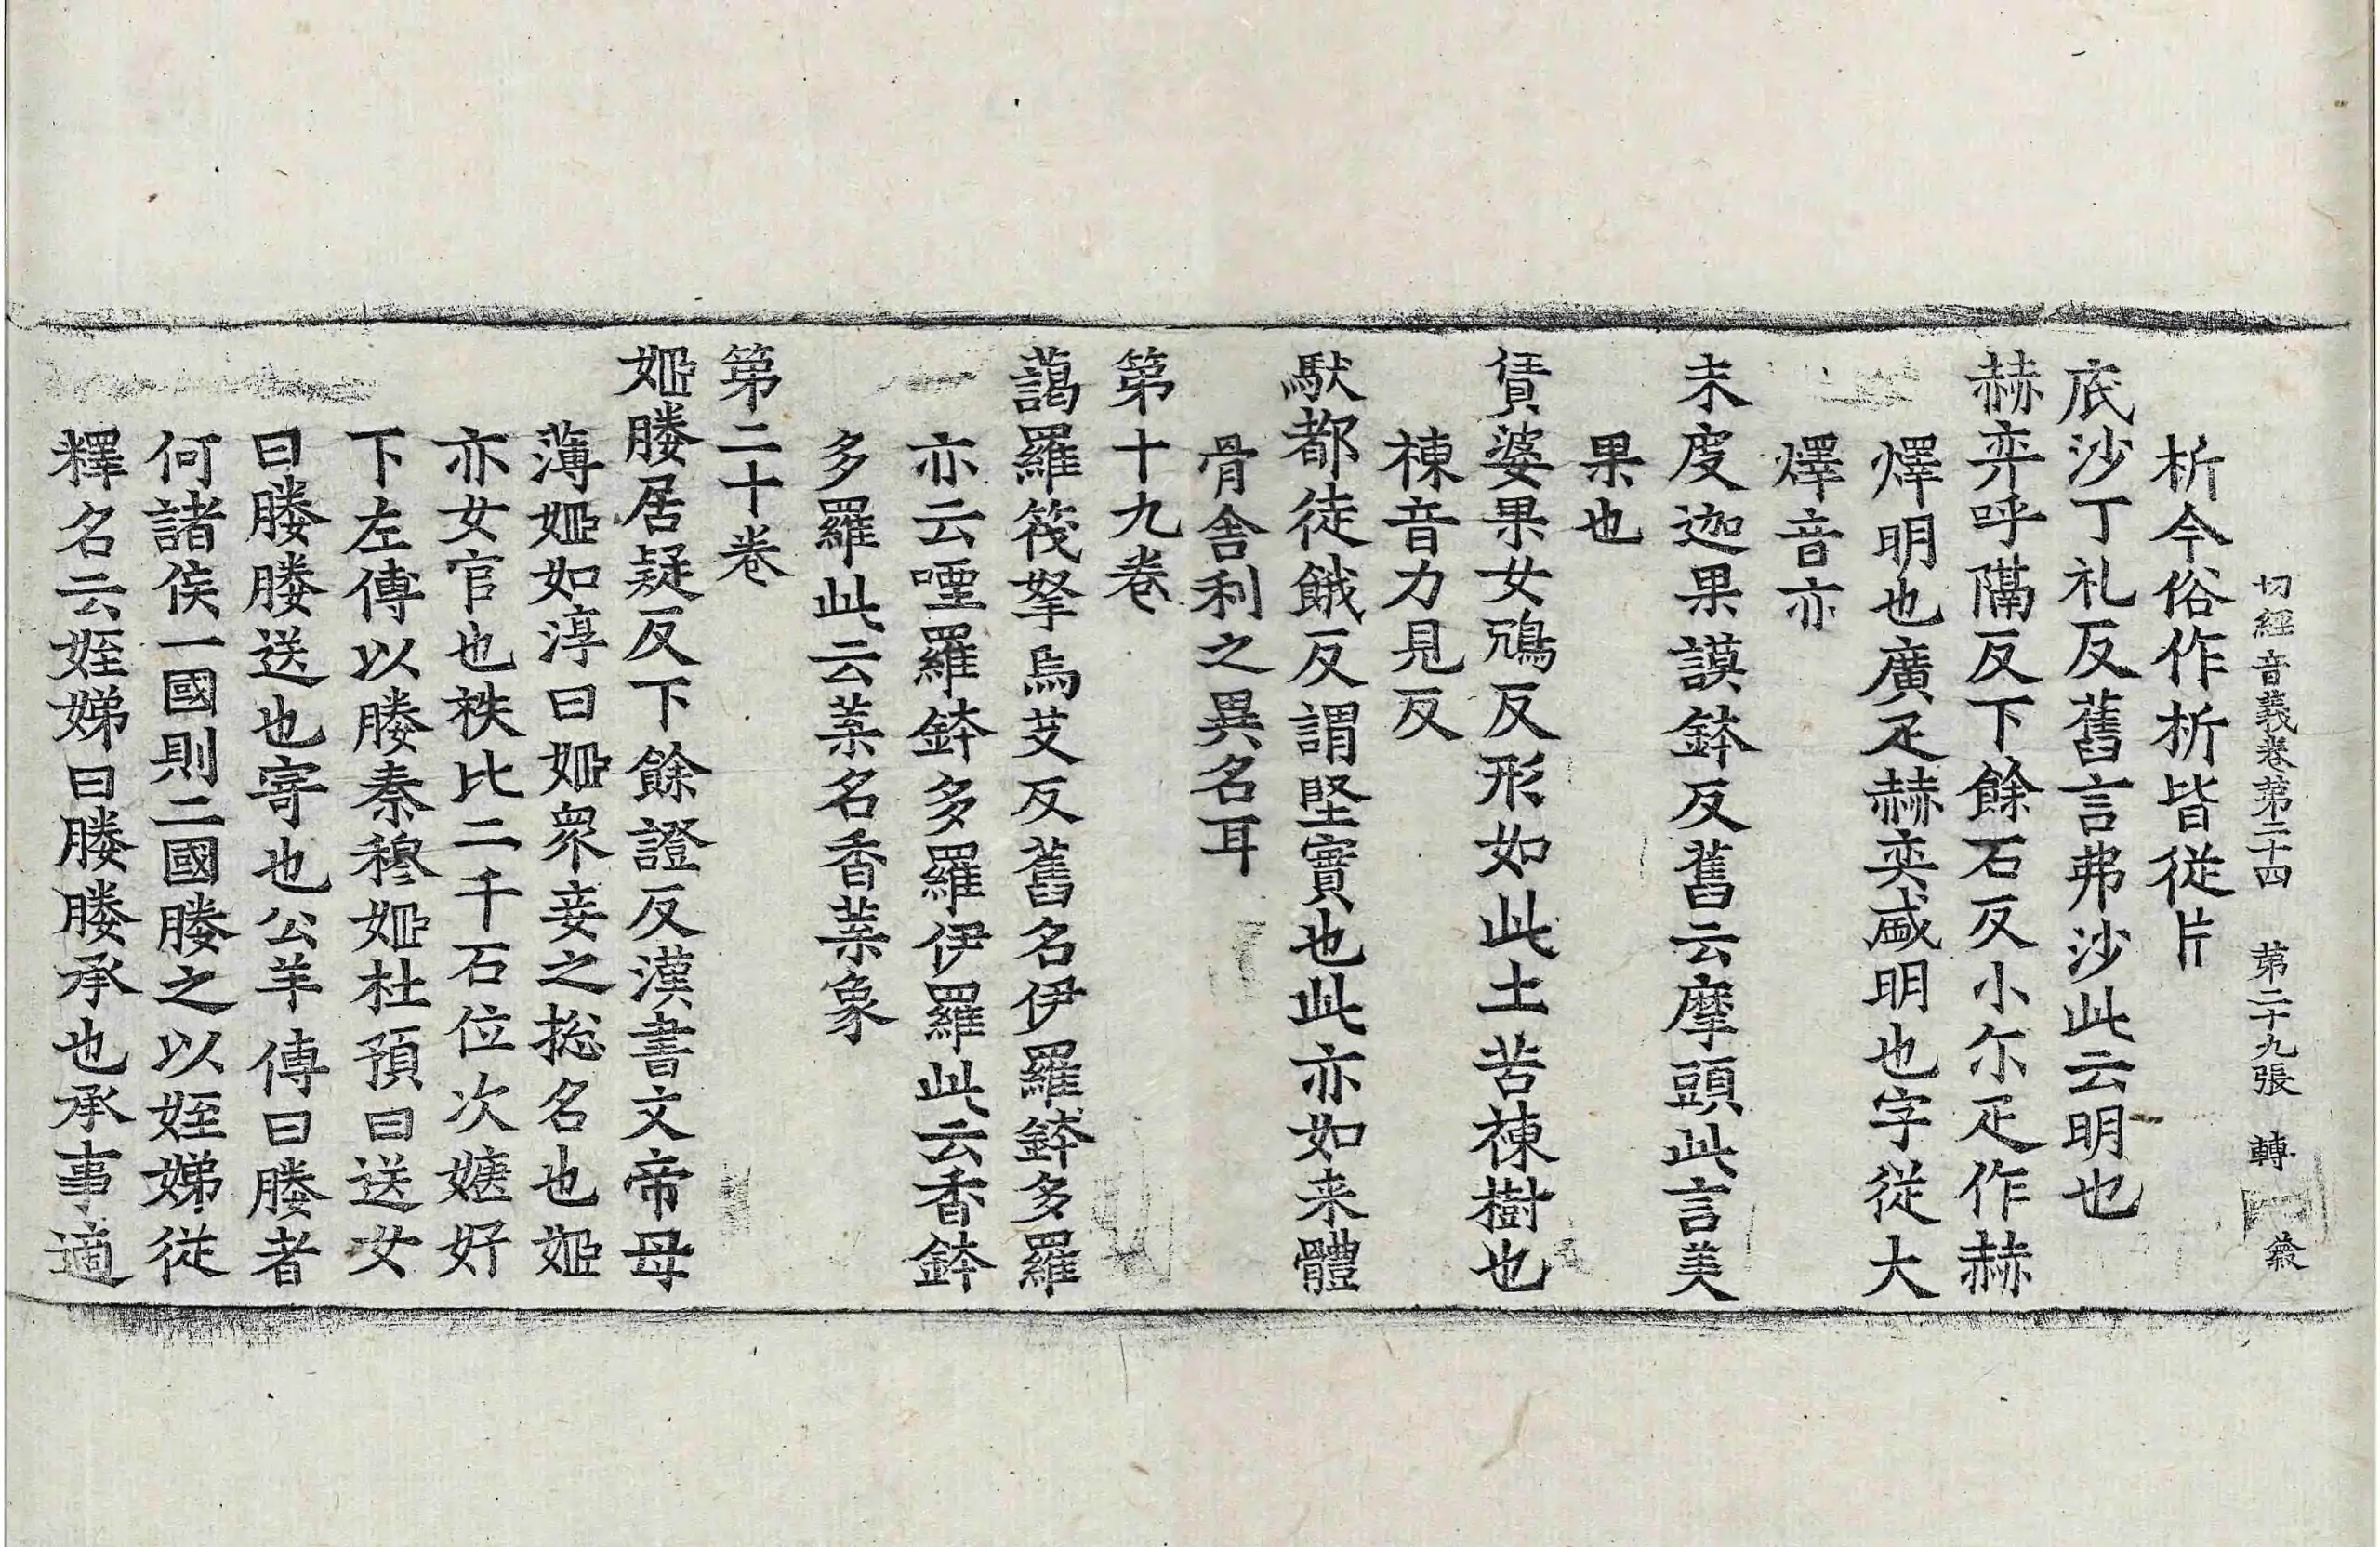 切經音義卷第二十四　第二十九張　轉
析今俗作枂皆從片
底沙丁礼反舊言弗沙此云明也
赫弈呼隔反下餘石反小尒疋作赫
燡明也廣疋赫奕盛明也字從大
燡音亦
末度迦果謨鉢反舊云摩頭此言美
果也
賃婆果女鴆反形如此土苦楝樹也
楝音力見反
馱都徒餓反謂堅實也此亦如来體
骨舎利之異名耳
第十九卷
藹羅筏拏烏艾反舊名伊羅鉢多羅
亦云㖶羅鉢多羅伊羅此云香鉢
多羅此云䒳名香䒳象
第二十卷
姬媵居疑反下餘證反漢書文帝母
薄姬如淳曰姬衆妾之揔名也姬
亦女官也秩比二千石位次婕好
下左傳以媵秦穆姬杜預曰送女
曰媵媵送也寄也公羊傳曰媵者
何諸侯一國則二國媵之以姪娣從
釋名云姪娣曰媵媵承也承事適